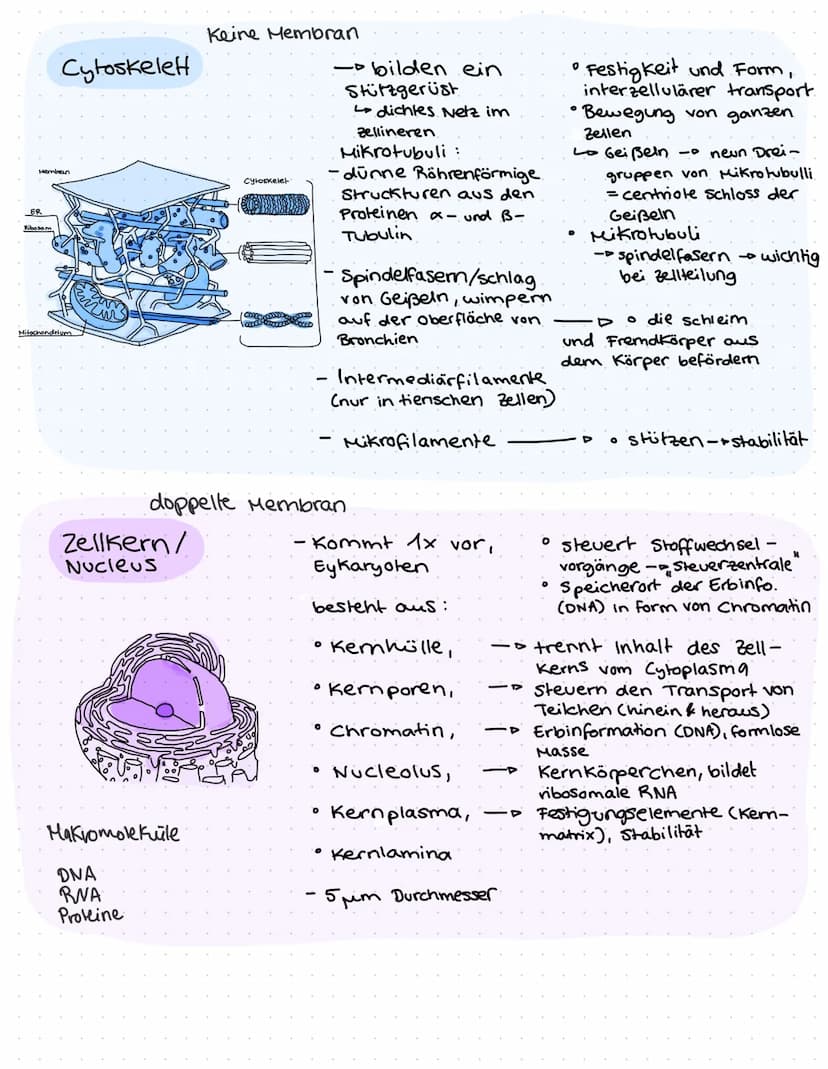 Keine Membran
Cytoskelett
Membran
ER
Ribosom
Mitochondrium
Cytoskelet
→ bilden ein
Stützgerüst
↳ dichtes Netz im
zellineren
Mikrotubuli :
- dünne Röhrenförmige
Struckturen aus den
Proteinen α- und β-
Tubulin
- Spindelfasern/schlag
von Geißeln, wimpern
auf der Oberfläche von
Bronchien
- Intermediärfilamente
(nur in tierischen Zellen)
- Mikrofilamente → • stützen → stabilität
• Festigkeit und Form,
interzellulärer transport
• Bewegung von ganzen
Zellen
↳ Geißeln → neun Drei-
gruppen von Mikrotubulli
= centriole Schloss der
Geißeln
• Mikrotubuli
→ spindelfasern → wichtig
bei Zellteilung
→ • die schleim
und Fremdkörper aus
dem Körper befördern
doppelte Membran
Zellkern/
Nucleus
- Kommt 1x vor,
Eykaryoten
besteht aus:
• steuert Stoffwechsel-
vorgänge → „Steuerzentrale"
• Speicherort der Erbinfo.
(DNA) in Form von Chromatin
• Kernhülle, → trennt Inhalt des Zell-
kerns vom Cytoplasma
• Kernporen, → steuern den Transport von
Teilchen (hinein & heraus)
• Chromatin, → Erbinformation (DNA), formlose
Masse
• Nucleolus, → Kernkörperchen, bildet
ribosomale RNA
• Kernplasma, → Festigungselemente (Kern-
matrix), Stabilität
• Kernlamina
- 5 μm Durchmesser
Makromoleküle
DNA
RNA
Proteine